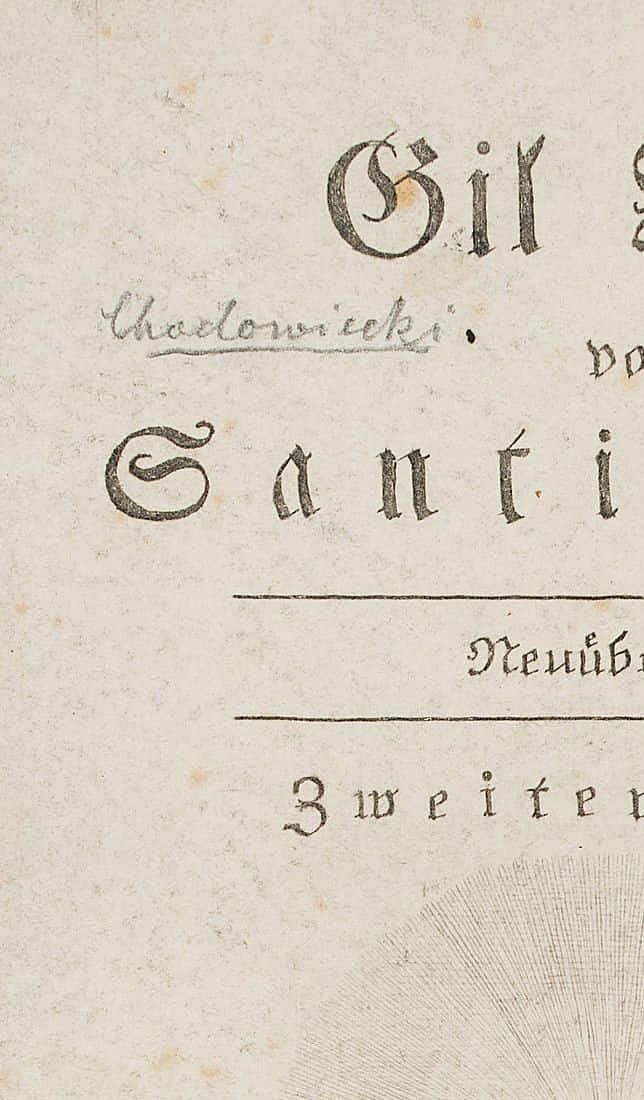 Gil
Chodowiecki.
vo
Santi
Neuüb
Zweiter